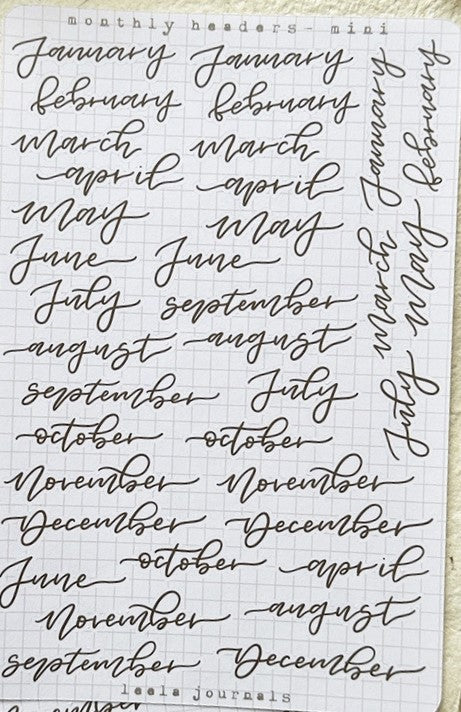 monthly headers - mini
January January
february february
march march
april april
May May
June June
July september
august august
september July
october october
November November
December December
october april
June
November august
september December
January february
march May
July
leela journals